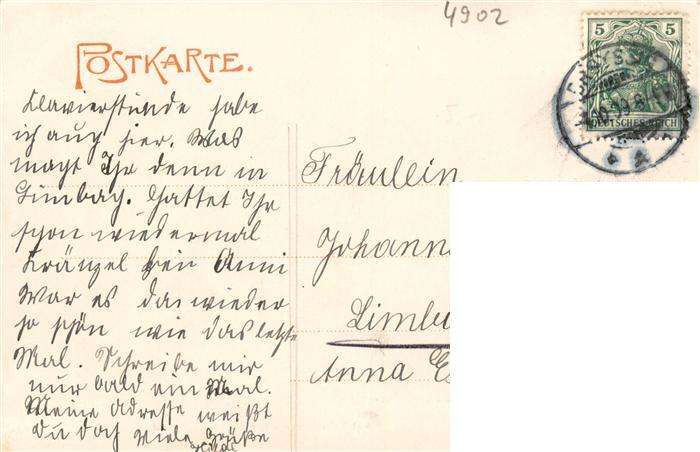 4902
POSTKARTE.
Klavierstunde habe
ich auch hier. Was
macht Ihr denn in
Limbach. Hattet Ihr
schon wiedermal
Kränzel bei Anni
War es da wieder
so schön wie das letzte
Mal. Schreibe mir
nur bald ein Mal.
Meine Adresse weißt
du doch viele Grüße
Fräulein
Johann
Limb
Anna
5 5
DEUTSCHES REICH